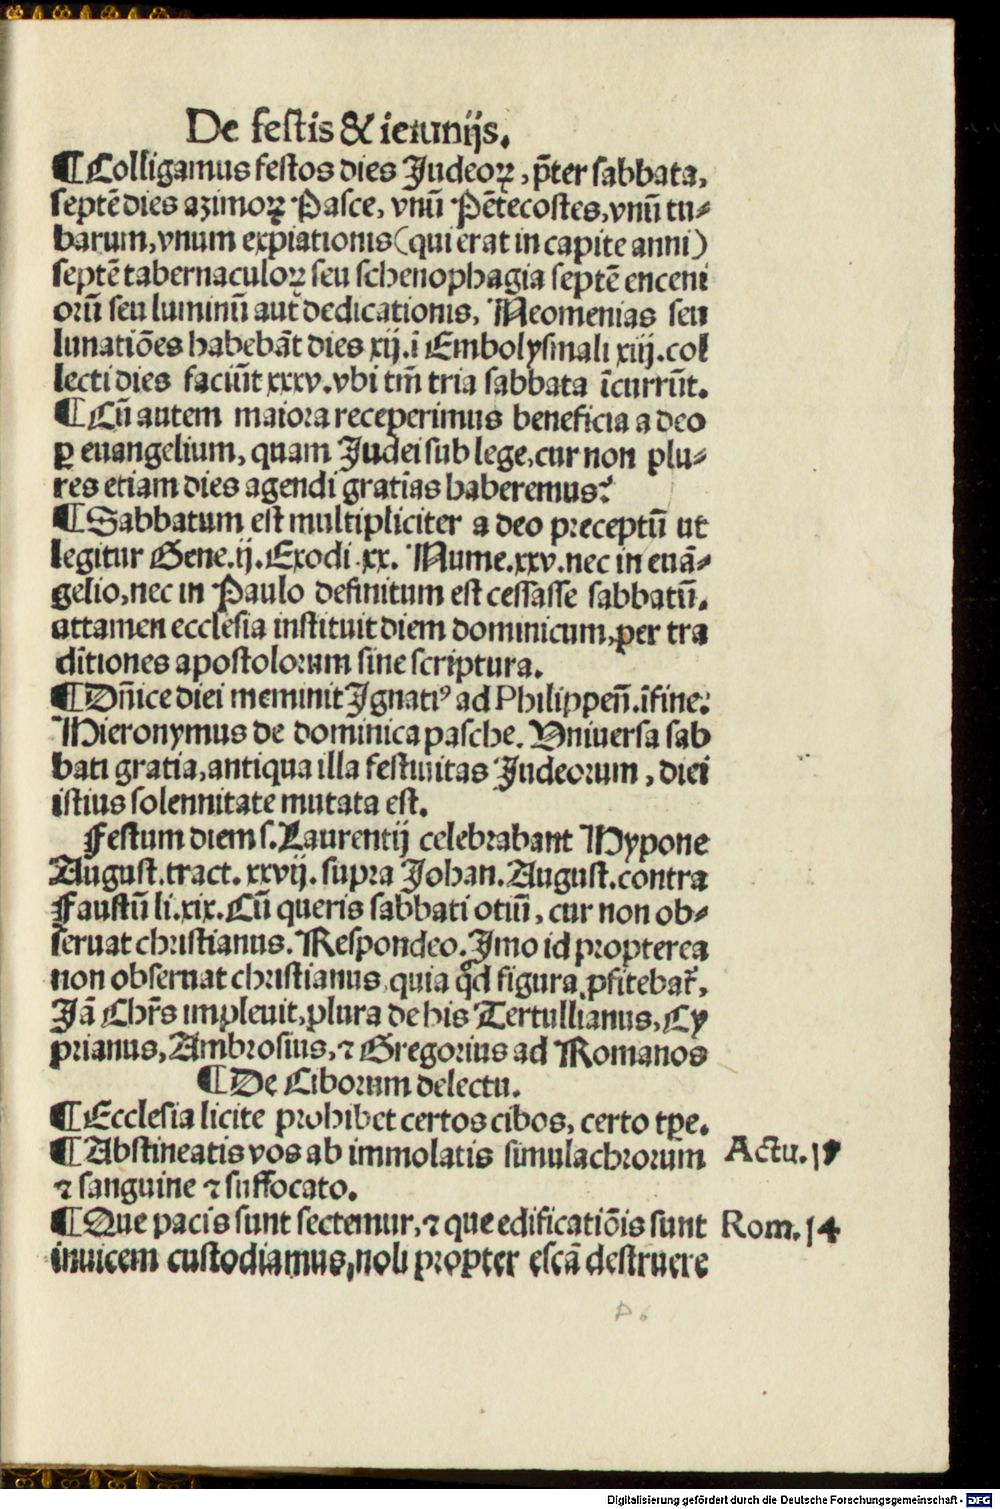 De festis & ieiunijs.
¶Colligamus festos dies Judeoꝝ, p̃ter sabbata,
septẽ dies azimoꝝ Pasce, vnũ Pẽtecostes, vnũ tu⸗
barum, vnum expiationis (qui erat in capite anni)
septẽ tabernaculoꝝ seu schenophagia septẽ enceni
orũ seu luminũ aut dedicationis, Neomenias seu
lunatiões habebãt dies xij. ĩ Embolysmali xiij. col
lecti dies faciũt xxxv. vbi tm̃ tria sabbata ĩcurrũt.
¶Cũ autem maiora receperimus beneficia a deo
ꝑ euangelium, quam Judei sub lege, cur non plu⸗
res etiam dies agendi gratias haberemus?
¶Sabbatum est multipliciter a deo preceptũ ut
legitur Gene.ij. Exodi.xx. Nume.xxv. nec in euã⸗
gelio, nec in Paulo definitum est cessasse sabbatũ.
attamen ecclesia instituit diem dominicum, per tra
ditiones apostolorum sine scriptura.
¶Dñice diei meminit Ignatiꝰ ad Philippeñ. ĩ fine.
Hieronymus de dominica pasche. Vniuersa sab
bati gratia, antiqua illa festiuitas Judeorum, diei
istius solennitate mutata est.
Festum diem s. Laurentij celebrabant Hypone
August. tract. xxvij. supra Johan. August. contra
Faustũ li. xix. Cũ queris sabbati otiũ, cur non ob⸗
seruat christianus. Respondeo. Imo id propterea
non obseruat christianus, quia qd̃ figura ꝓfitebat̃,
Jã Chr̃s impleuit, plura de his Tertullianus, Cy
prianus, Ambrosius, ⁊ Gregorius ad Romanos
¶De Ciborum delectu.
¶Ecclesia licite prohibet certos cibos, certo tꝑe.
¶Abstineatis vos ab immolatis simulachrorum Actu. 15
⁊ sanguine ⁊ suffocato.
¶Que pacis sunt sectemur, ⁊ que edificatiõis sunt Rom. 14
inuicem custodiamus, noli propter escã destruere
D 6
Digitalisierung gefördert durch die Deutsche Forschungsgemeinschaft - DFG